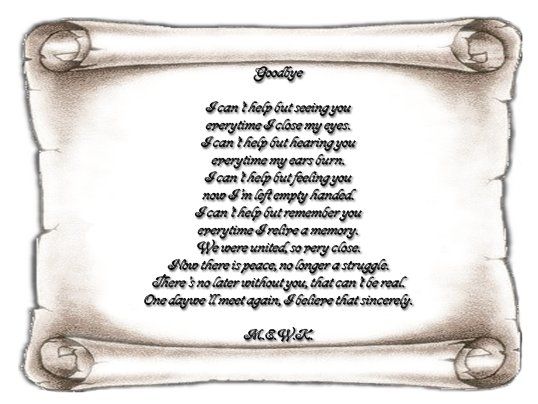 Goodbye
I can't help but seeing you
everytime I close my eyes.
I can't help but hearing you
everytime my ears burn.
I can't help but feeling you
now I'm left empty handed.
I can't help but remember you
everytime I relive a memory.
We were united, so very close.
Now there is peace, no longer a struggle.
There's no later without you, that can't be real.
One daywe'll meet again, I believe that sincerely.
M.E.W.K.